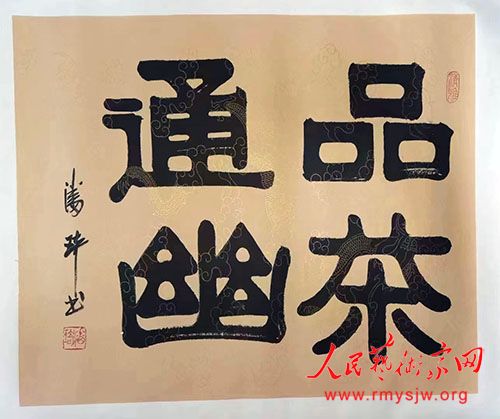 品茶
通幽
人民藝術家网
www.rmysjw.org